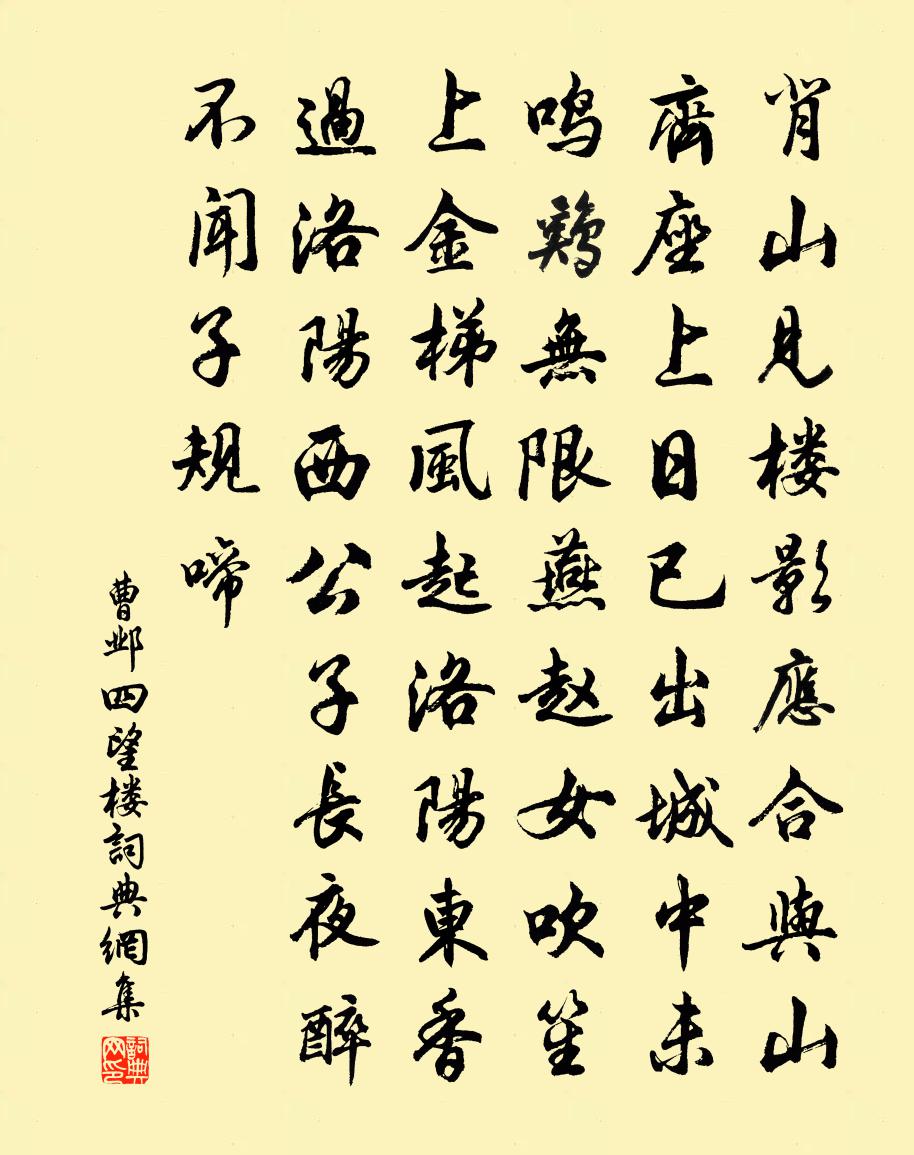 肖山見楼影應合與山
齊座上日已出城中未
鳴鷄無限燕赵女吹笙
上金梯風起洛陽東香
過洛陽西公子長夜醉
不闻子規啼
曹邺四望楼詞典網集
詞典网印